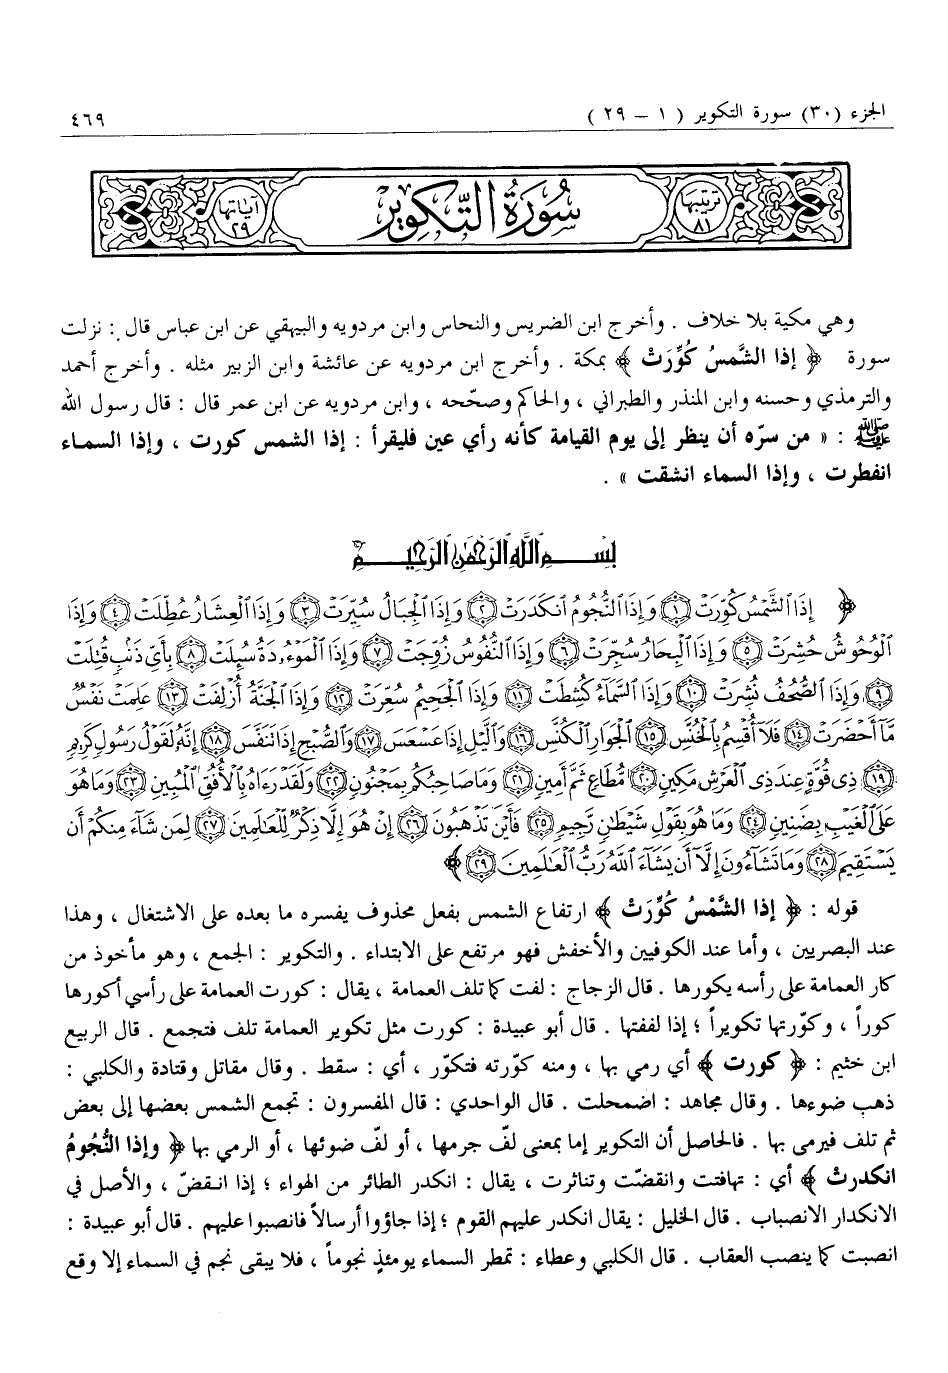 الجزء (٣٠) سورة التكوير ( ١ – ٢٩ ) ٤٦٩
ترتيبها ٨١ سُورَةُ التَّكوير آياتها ٢٩
وهي مكية بلا خلاف . وأخرج ابن الضريس والنحاس وابن مردويه والبيهقي عن ابن عباس قال : نزلت
سورة ﴿ إذا الشَّمسُ كُوِّرَتْ ﴾ بمكة . وأخرج ابن مردويه عن عائشة وابن الزبير مثله . وأخرج أحمد
والترمذي وحسنه وابن المنذر والطبراني ، والحاكم وصحّحه ، وابن مردويه عن ابن عمر قال : قال رسول الله
ﷺ : « من سرّه أن ينظر إلى يوم القيامة كأنه رأي عين فليقرأ : إذا الشمس كورت ، وإذا السماء
انفطرت ، وإذا السماء انشقت » .
بِسْمِ اللَّهِ الرَّحْمَٰنِ الرَّحِيمِ
﴿ إِذَا ٱلشَّمْسُ كُوِّرَتْ ١ وَإِذَا ٱلنُّجُومُ ٱنكَدَرَتْ ٢ وَإِذَا ٱلْجِبَالُ سُيِّرَتْ ٣ وَإِذَا ٱلْعِشَارُ عُطِّلَتْ ٤ وَإِذَا
ٱلْوُحُوشُ حُشِرَتْ ٥ وَإِذَا ٱلْبِحَارُ سُجِّرَتْ ٦ وَإِذَا ٱلنُّفُوسُ زُوِّجَتْ ٧ وَإِذَا ٱلْمَوْءُۥدَةُ سُئِلَتْ ٨ بِأَىِّ ذَنۢبٍ قُتِلَتْ
٩ وَإِذَا ٱلصُّحُفُ نُشِرَتْ ١٠ وَإِذَا ٱلسَّمَآءُ كُشِطَتْ ١١ وَإِذَا ٱلْجَحِيمُ سُعِّرَتْ ١٢ وَإِذَا ٱلْجَنَّةُ أُزْلِفَتْ ١٣ عَلِمَتْ نَفْسٌ
مَّآ أَحْضَرَتْ ١٤ فَلَآ أُقْسِمُ بِٱلْخُنَّسِ ١٥ ٱلْجَوَارِ ٱلْكُنَّسِ ١٦ وَٱلَّيْلِ إِذَا عَسْعَسَ ١٧ وَٱلصُّبْحِ إِذَا تَنَفَّسَ ١٨ إِنَّهُۥ لَقَوْلُ رَسُولٍ كَرِيمٍ
١٩ ذِى قُوَّةٍ عِندَ ذِى ٱلْعَرْشِ مَكِينٍ ٢٠ مُّطَاعٍ ثَمَّ أَمِينٍ ٢١ وَمَا صَاحِبُكُم بِمَجْنُونٍ ٢٢ وَلَقَدْ رَءَاهُ بِٱلْأُفُقِ ٱلْمُبِينِ ٢٣ وَمَا هُوَ
عَلَى ٱلْغَيْبِ بِضَنِينٍ ٢٤ وَمَا هُوَ بِقَوْلِ شَيْطَانٍ رَّجِيمٍ ٢٥ فَأَيْنَ تَذْهَبُونَ ٢٦ إِنْ هُوَ إِلَّا ذِكْرٌ لِّلْعَالَمِينَ ٢٧ لِمَن شَآءَ مِنكُمْ أَن
يَسْتَقِيمَ ٢٨ وَمَا تَشَآءُونَ إِلَّآ أَن يَشَآءَ ٱللَّهُ رَبُّ ٱلْعَالَمِينَ ٢٩ ﴾
قوله : ﴿ إذا الشَّمْسُ كُورَتْ ﴾ ارتفاع الشمس بفعل محذوف يفسره ما بعده على الاشتغال ، وهذا
عند البصريين ، وأما عند الكوفيين والأخفش فهو مرتفع على الابتداء . والتكوير : الجمع ، وهو مأخوذ من
كار العمامة على رأسه يكورها . قال الزجاج : لفت كما تلف العمامة ، يقال : كورت العمامة على رأسي أكورها
كوراً ، وكوّرتها تكويراً ؛ إذا لففتها . قال أبو عبيدة : كورت مثل تكوير العمامة تلف فتجمع . قال الربيع
ابن خثيم : ﴿ كورت ﴾ أي رمي بها ، ومنه كوّرته فتكوّر ، أي : سقط . وقال مقاتل وقتادة والكلبي :
ذهب ضوءها . وقال مجاهد : اضمحلت . قال الواحدي : قال المفسرون : تجمع الشمس بعضها إلى بعض
ثم تلف فيرمى بها . فالحاصل أن التكوير إما بمعنى لفّ جرمها ، أو لفّ ضوئها ، أو الرمي بها ﴿ وإذا النُّجُومُ
انكدرتْ ﴾ أي : تهافتت وانقضّت وتناثرت ، يقال : انكدر الطائر من الهواء ؛ إذا انـقضّ ، والأصل في
الانكدار الانصباب . قال الخليل : يقال انكدر عليهم القوم ؛ إذا جاؤوا أرسالاً فانصبوا عليهم . قال أبو عبيدة :
انصبت كما ينصب العقاب . قال الكلبي وعطاء : تمطر السماء يومئذٍ نجوماً ، فلا يبقى نجم في السماء إلا وقع